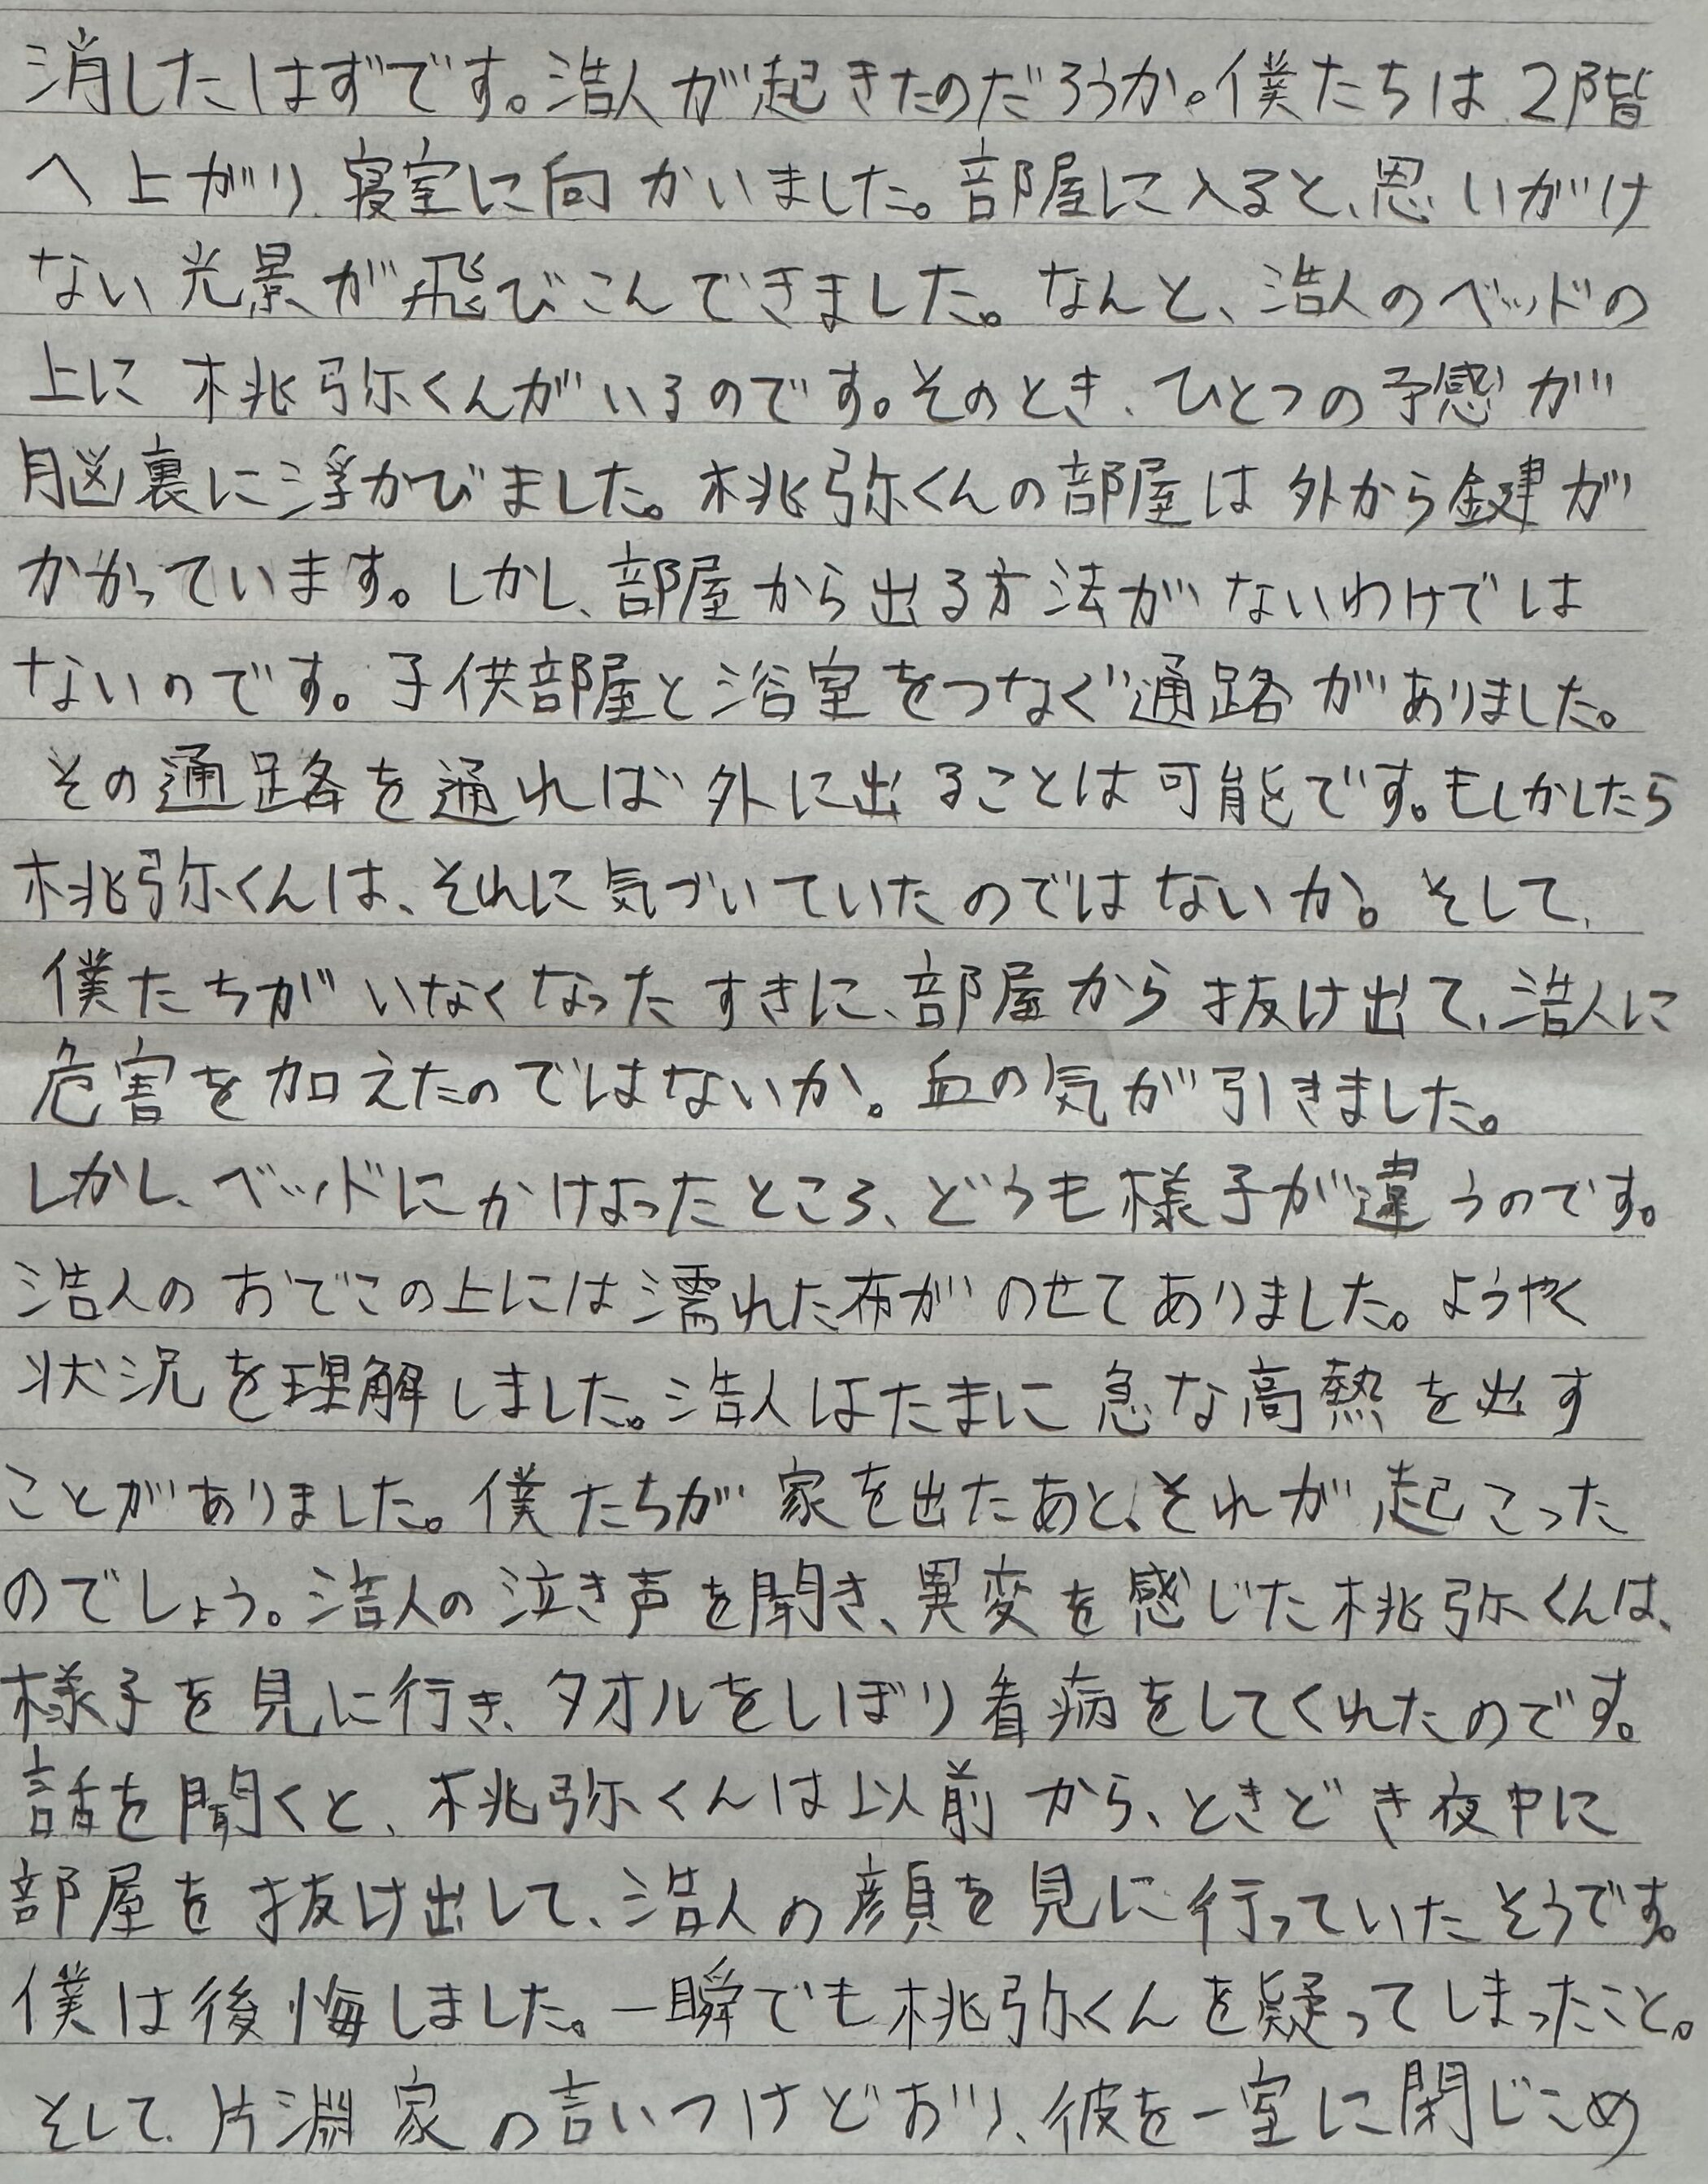 消したはずです。浩人が起きたのだろうか。僕たちは2階
へ上がり、寝室に向かいました。部屋に入ると、思いがけ
ない光景が飛びこんできました。なんと、浩人のベッドの
上に桃弥くんがいるのです。そのとき、ひとつの予感が
脳裏に浮かびました。桃弥くんの部屋は外から鍵が
かかっています。しかし、部屋から出る方法がないわけでは
ないのです。子供部屋と浴室をつなぐ通路がありました。
その通路を通れば外に出ることは可能です。もしかしたら
桃弥くんは、それに気づいていたのではないか。そして、
僕たちがいなくなったすきに、部屋から抜け出て、浩人に
危害を加えたのではないか。血の気が引きました。
しかし、ベッドにかけよったところ、どうも様子が違うのです。
浩人のおでこの上には濡れた布がのせてありました。ようやく
状況を理解しました。浩人はたまに急な高熱を出す
ことがありました。僕たちが家を出たあと、それが起こった
のでしょう。浩人の泣き声を聞き、異変を感じた桃弥くんは、
様子を見に行き、タオルをしぼり看病をしてくれたのです。
話を聞くと、桃弥くんは以前から、ときどき夜中に
部屋を抜け出して、浩人の顔を見に行っていたそうです。
僕は後悔しました。一瞬でも桃弥くんを疑ってしまったこと。
そして、片淵家の言いつけどおり、彼を一室に閉じこめ